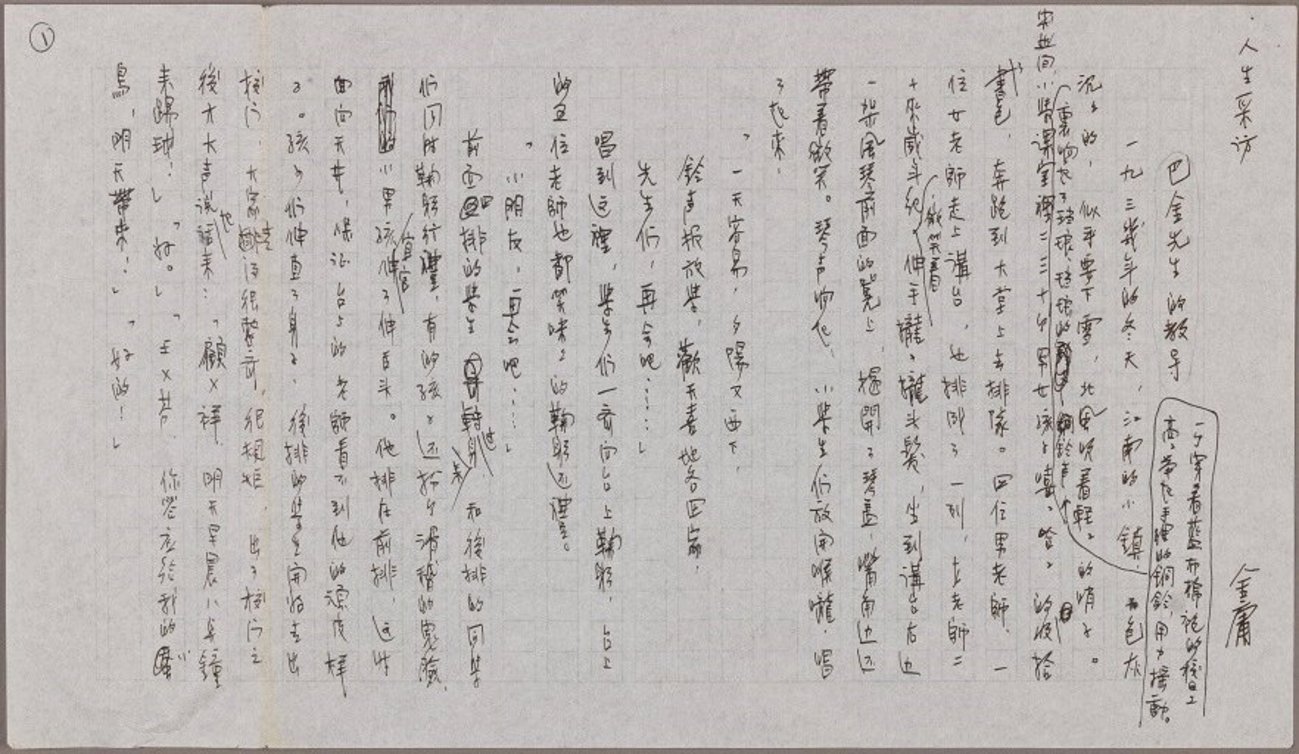 ①
·人生采访
巴金先生的教导
金庸
一九三几年的冬天，江南的小镇，天色灰
沉沉的，似乎要下雪，北风吹着轻轻的哨子。
突然间，小学课室里二三十个男女孩子嘻嘻哈哈的收拾
裏响起了玱琅玱琅的铜鈴声，
一个穿着藍布棉袍的校工
高举起手裡的銅鈴，用力摇動。
書包，奔跑到大堂上去排隊。四位男老師、一
位女老師走上講台，也排成了一列，女老師二
十來歲年纪，微笑着伸手攏攏頭髮，坐到講台右边
一架風琴前面的凳上，揭開了琴蓋，嘴角边还
帶着微笑。琴声响起，小学生们放開喉嚨，唱
了起來：
「一天容易，夕陽又西下，
鈴声报放学，歡天喜地各回家，
先生们，再会吧……」
唱到这裡，学生们一齐向台上鞠躬，台上
的五位老師也都笑咪咪的鞠躬还禮。
「小朋友，再会吧……」
前面四排的学生也轉身來，和後排的同学
们同时鞠躬行禮，有的孩子还扮个滑稽的鬼臉，
小男孩宜官伸了伸舌头。他排在前排，这时
面向天井，保证台上的老師看不到他的頑皮樣
子。孩子们伸直了身子，後排的学生開始走出
校门，大家走得很整齐，很規矩，出了校门之
後才大声说起話来：「顧×祥，明天早晨八点鐘
来踢球！」「好。」「王×芳，你答应给我的小
鳥，明天帶来！」「好的！」